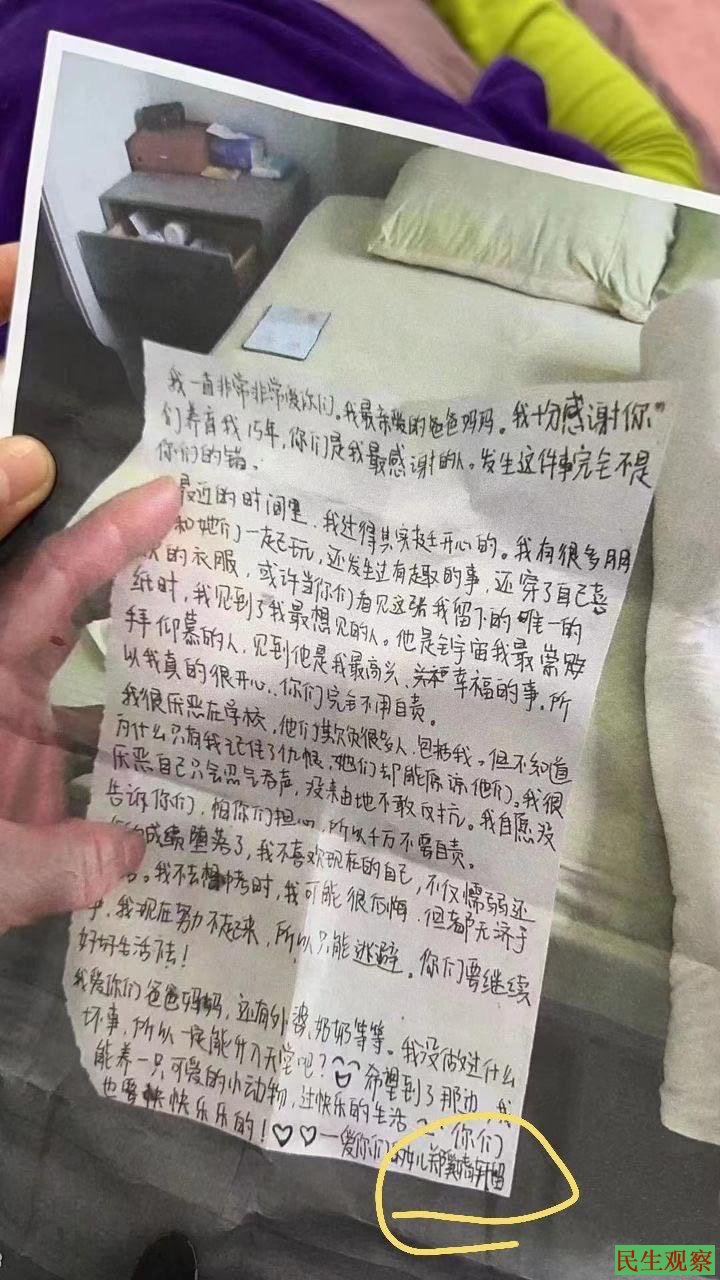 我一直非常非常爱你们。我最亲爱的爸爸妈妈。我十分感谢你
们养育我15年,你们是我最感谢的人。发生这件事完全不是
你们的错。
最近的时间里,我过得其实挺开心的。我有很多朋
和她们一起玩,还发生过有趣的事,还穿了自己喜
的衣服,或许当你们看见这张我留下的唯一的
纸时,我见到了我最想见的人。他是全宇宙我最崇
拜仰慕的人,见到他是我最高兴、幸福的事,所
以我真的很开心,你们完全不用自责。
我很厌恶在学校,他们欺负很多人,包括我。但不知道
为什么只有我记住了仇恨,她们却能原谅他们。我很
厌恶自己只会忍气吞声,没来由地不敢反抗。我自愿没
告诉你们,怕你们担心,所以千万不要自责。
成绩堕落了,我不喜欢现在的自己,不仅懦弱还
。我不去中考时,我可能很后悔,但都无济于
事,我现在努力不起来,所以只能逃避。你们要继续
好好生活下去!
我爱你们爸爸妈妈,还有外婆、奶奶等等。我没做过什么
坏事,所以一定能升入天堂吧?希望到了那边,我
能养一只可爱的小动物,过快乐的生活 你们
也要快快乐乐的!♡♡—爱你们的女儿郑
民生观察